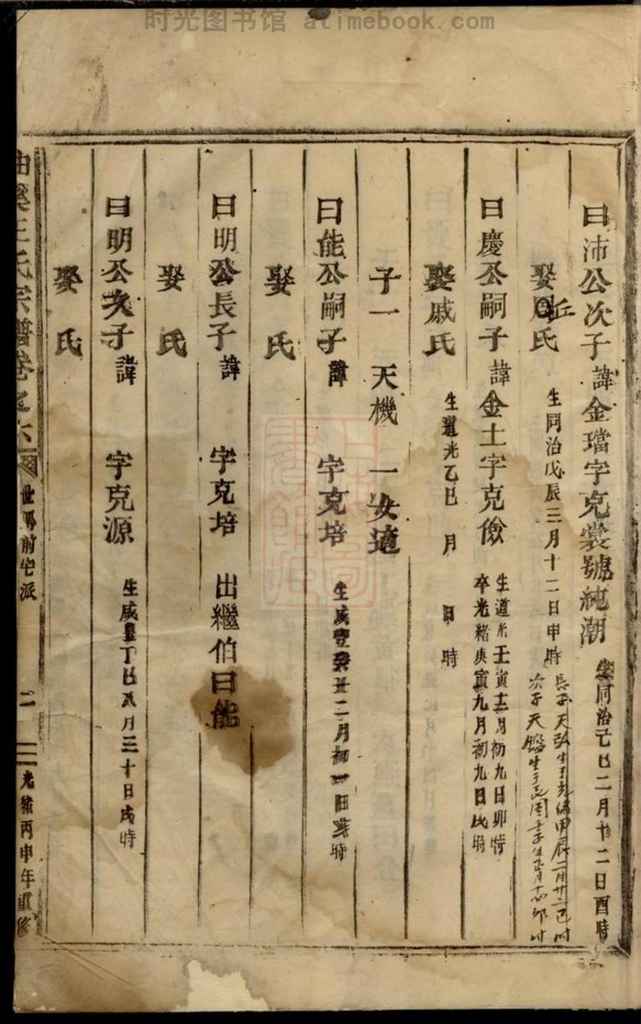 时光图书馆 - atimebook.com
曰沛公次子 諱金璫字克裳號純潮 生同治己巳二月十二日酉時
娶丘氏 生同治戊辰三月十二日申時 長子天弘生于光緒甲辰二月廿二巳时
次子天鑑生于民国
曰慶公嗣子 諱金土字克儉 生道光壬寅十二月初九日卯時
卒光緒庚寅九月初九日氏時
娶戚氏 生道光乙巳 月 日 時
子一 天機 一女適
曰能公嗣子 諱 字克培 生咸豐癸丑二月初一日亥時
娶 氏
曰明公長子 諱 字克培 出繼伯曰能
娶 氏
曰明公次子 諱 字克源 生咸豐丁巳八月三十日戌時
娶 氏
王氏宗譜卷之六 世 前宅派 光緒丙申年重修